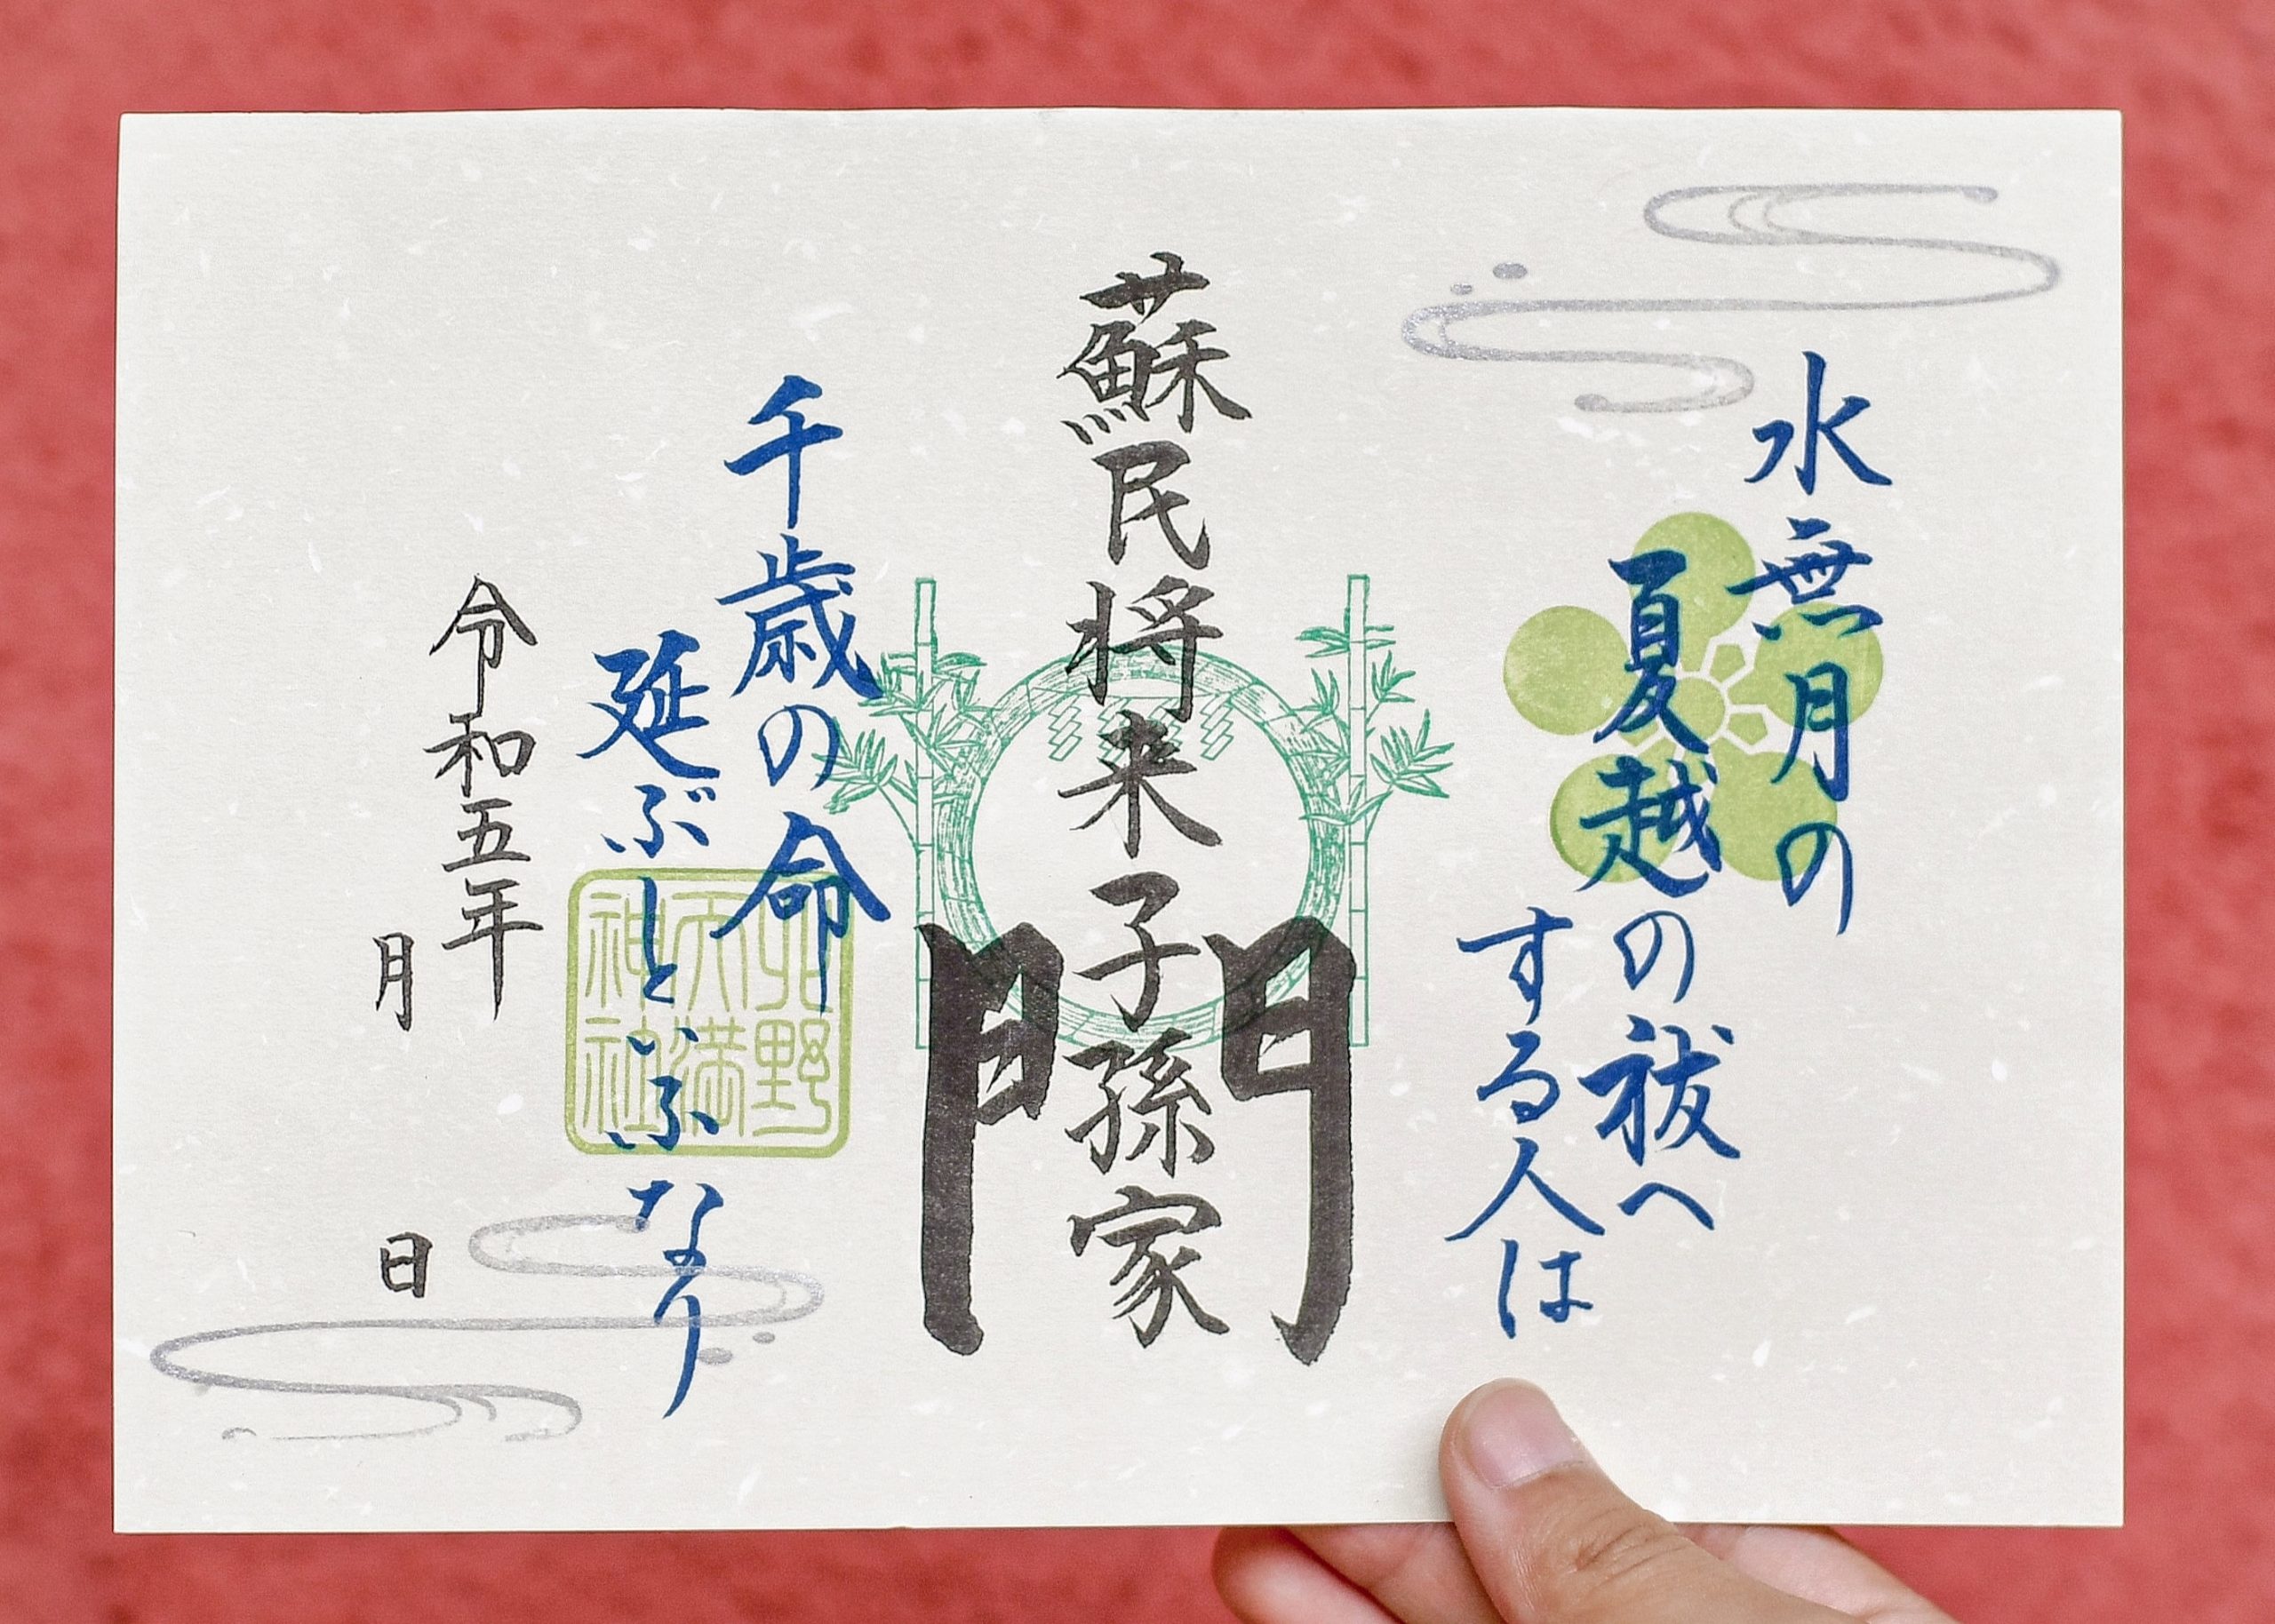 水無月の
夏越の祓へ
する人は
蘇民将来子孫家門
千歳の命
延ぶといふなり
北野
天満
神社
令和五年
月
日